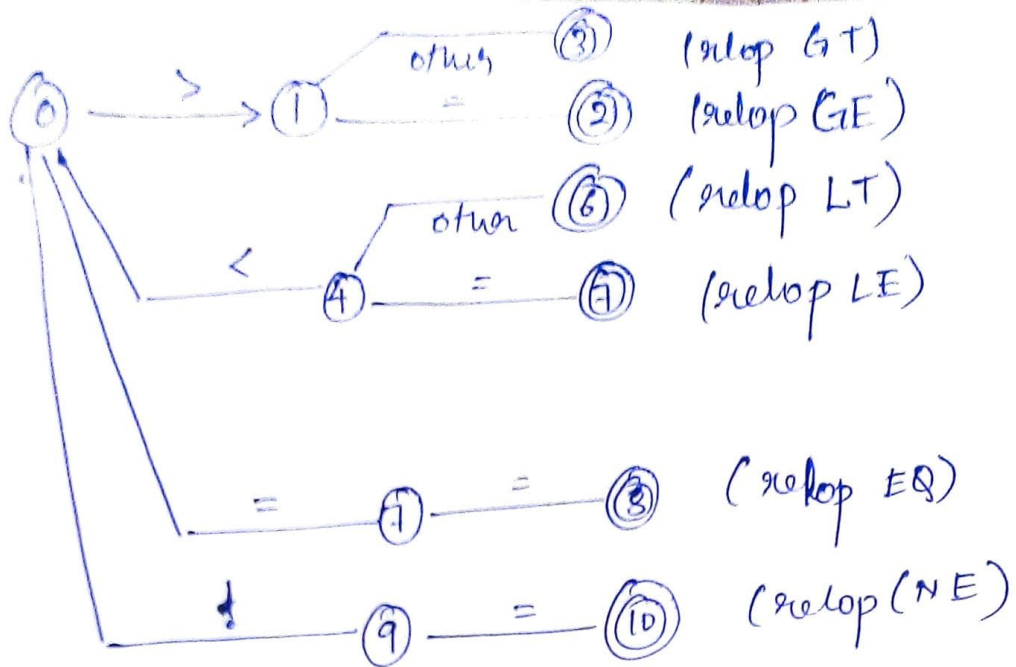 other (3) (relop GT)
0 > 1 = (2) (relop GE)
other (6) (relop LT)
< 4 = (relop LE)
= 7 = 8 (relop EQ)
9 = 10 (relop (NE)